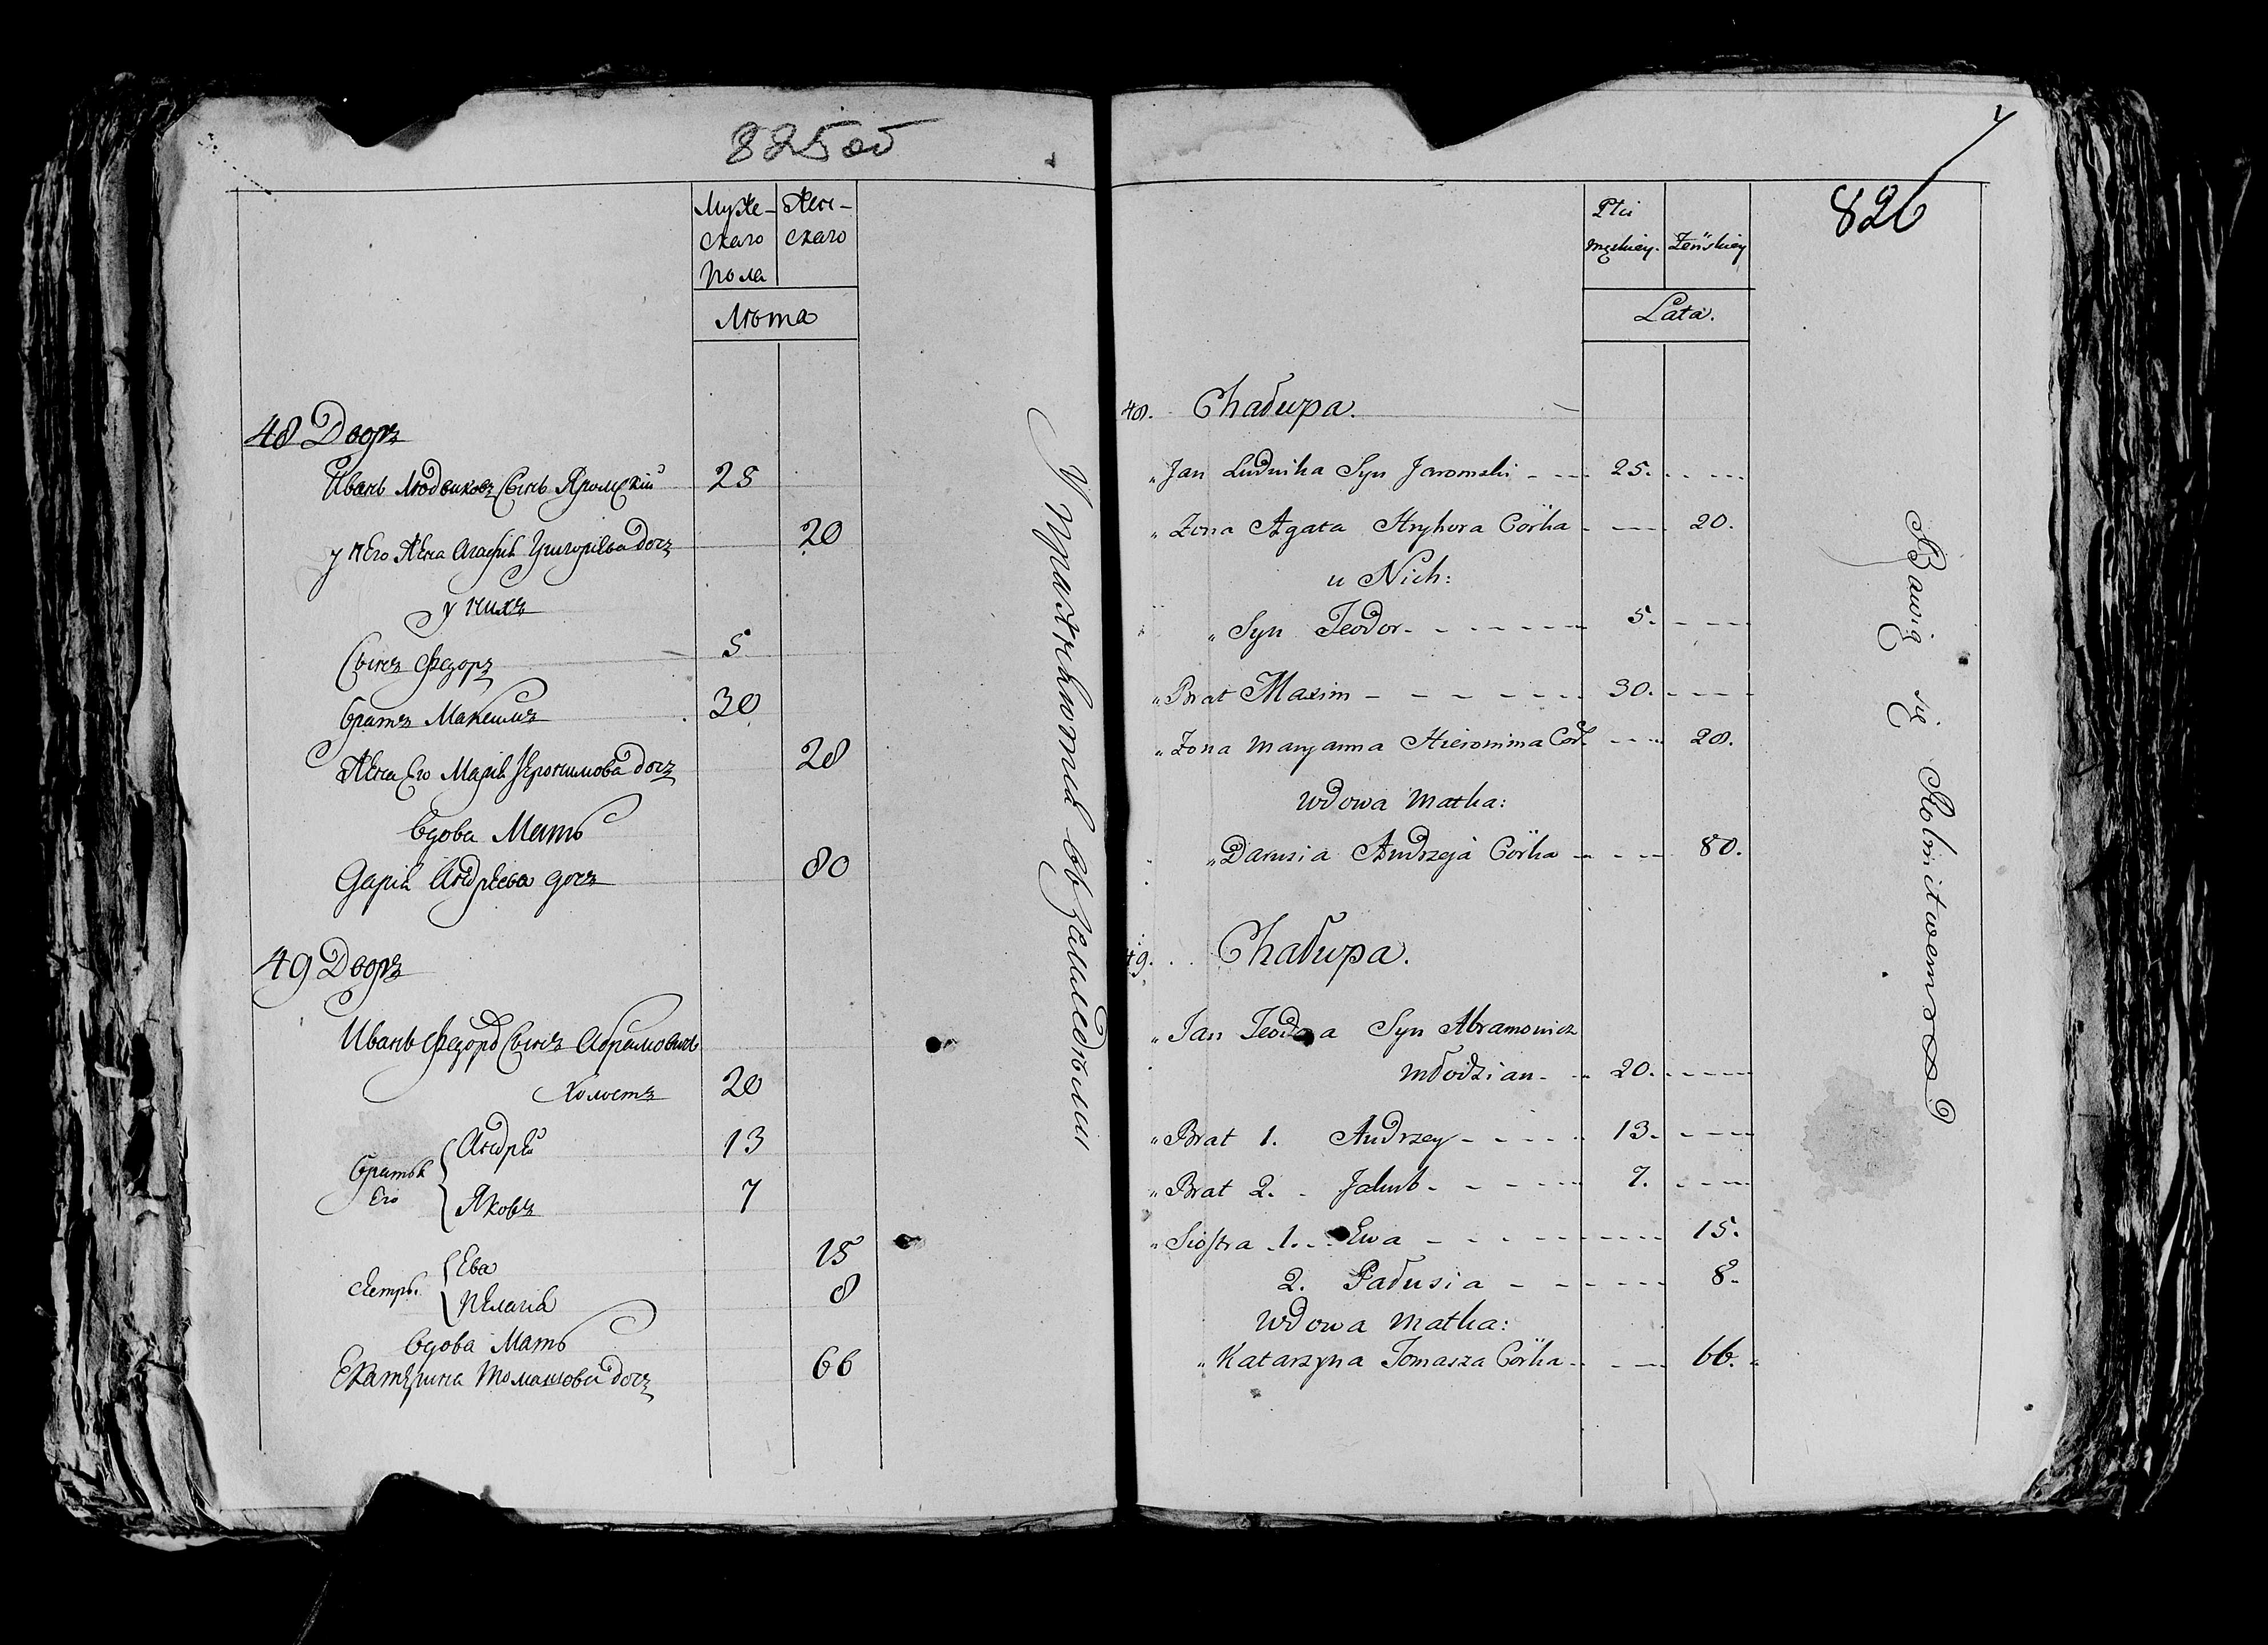 825 об
Муже- Жен-
скаго скаго
пола
Лѣта
48 Дворъ
Иванъ Людвиковъ Сынъ Яромскій 25
у него Жена Агафия Григориева дочъ 20
у нихъ
Сынъ Федоръ 5
братъ Максимъ 30
Жена Его Мария Иеронимова дочъ 28
Вдова Мать
Дария Андреева дочъ 80
49 Дворъ
Иванъ Федоръ Сынъ Абрамовичь
Холостъ 20
братья Его { Андрей 13
Яковъ 7
сестры { Ева 15
Пелагия 8
Вдова Мать
Екатерина Томашова дочъ 66
Упражняются въ Земледѣлии
826
Płci
męskiey. Żeńskiey
Lata.
48. Chałupa.
„ Jan Ludwika Syn Jaromski - - - 25. - - - -
„ Żona Agata Hryhora Córka - - - - 20.
u Nich:
„ Syn Teodor - - - - - - - 5. - - - -
„ Brat Maxim - - - - - - - 30. - - - -
„ Żona Maryanna Hieronima Cór. - - - 28.
Wdowa Matka:
„ Darusia Andrzeja Córka - - - - 80.
49. Chałupa.
„ Jan Teodora Syn Abramowicz
młodzian - - 20. - - - -
„ Brat 1. Andrzey - - - - - 13. - - - -
„ Brat 2. Jakub - - - - - 7. - - - -
„ Siostra 1. Ewa - - - - - - - - 15.
2. Pałusia - - - - - - 8.
Wdowa Matka:
„ Katarzyna Tomasza Córka - - - - 66.
Bawią się Rolnictwem